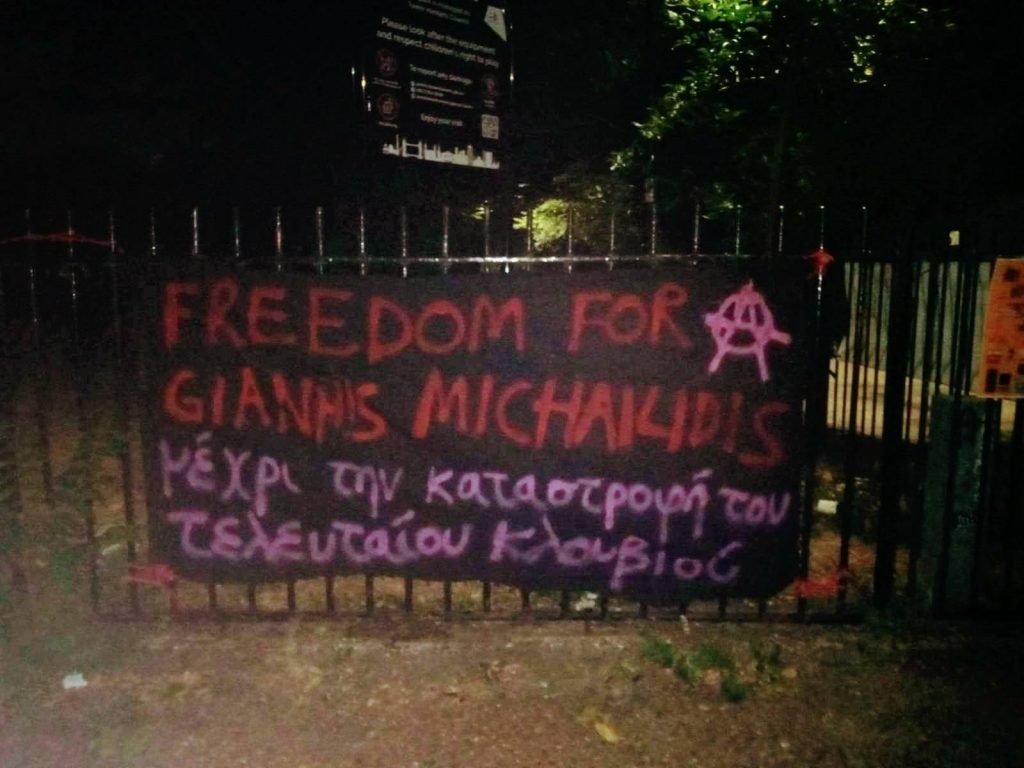 Please look after the equipment
and respect children's right to play
To report any damage
Enjoy your visit
FREEDOM FOR Ⓐ
GIANNIS MICHAILIDIS
μέχρι την καταστροφή του
τελευταίου κλουβιού